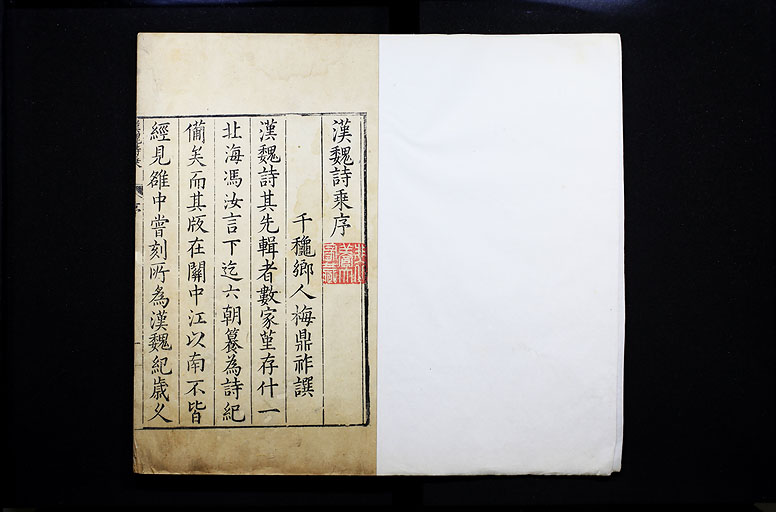 漢魏詩乘序
千穐鄉人梅鼎祚譔
漢魏詩其先輯者數家堇存什一
北海馮汝言下迄六朝纂為詩紀
備矣而其版在關中江以南不皆
經見雒中嘗刻所為漢魏紀歲久